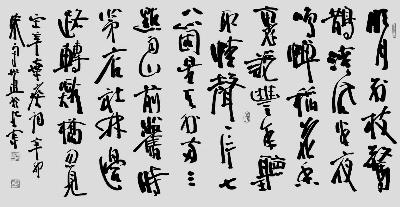 明月别枝驚
鵲清風半夜
鳴蟬稻花香
裏說豐年聽
取蛙聲一片七
八個星天外兩三
點雨山前舊時
茅店社林邊
路轉溪橋忽見
辛棄疾詞辛卯